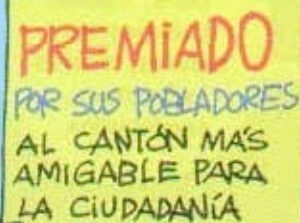 PREMiADO
POR SUS POBLADORES
AL CANTÓN MÁS
AMIGABLE PARA
LA CiUDADANÍA